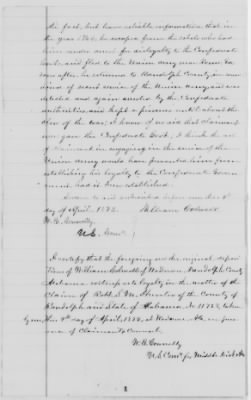 the fact, but have reliable information that in
the year 1862 he escaped from the rebels who had
him under arrest for disloyalty to the Confederate
and fled to the Union army near Rome, Ga
soon after he returned to Randolph County, on
of secret service of the Union Army and was
detected and again arrested by the Confederate
authorities and kept a prisoner until about the
close of the war; I know of no aid that claimant
ever gave the Confederate Govt. I think the act
of claimant in engaging in the service of the
Union Army would have prevented him from
establishing his loyalty to the Confederate Govern
ment, had it been established.
Sworn to and subscribed before me this
day of April 1872. William
W. G. Connelly
U.S. Comr.
I certify that the foregoing are the original deposi
tions of William of Wedowee, Randolph County
Alabama, witness as to loyalty in the matter of the
Claim of Robt. S. M. Hunter of the County
of Randolph and State of Alabama, No. taken
day of April, 1872, at Wedowee Ala. in pres
ence of Claimant's Counsel.
W. G. Connelly
U.S. Comr. for Middle Dist. Ala